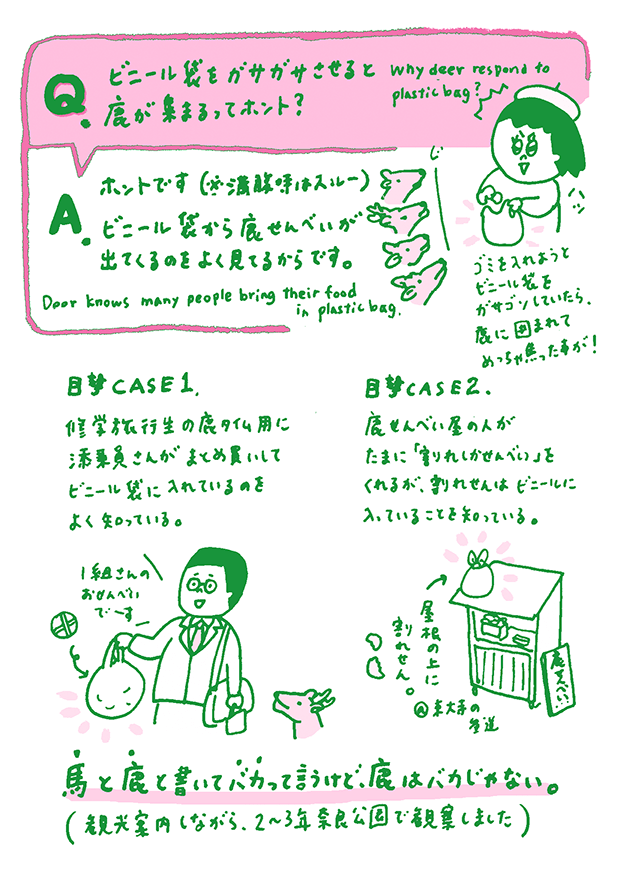 Q.
ビニール袋をガサガサさせると
鹿が集まるってホント?
Why deer respond to
plastic bag?
A.
ホントです(※満腹時はスルー)
ビニール袋から鹿せんべいが
出てくるのをよく見てるからです。
Deer knows many people bring their food
in plastic bag.
じーっ
ハッ
ゴミを入れようと
ビニール袋を
ガサゴソしていたら、
鹿に囲まれて
めっちゃ焦った事が!
目撃CASE1.
修学旅行生の鹿タイム用に
添乗員さんがまとめ買いして
ビニール袋に入れているのを
よく知っている。
1組さんの
おせんべい
でーす
目撃CASE2.
鹿せんべい屋の人が
たまに「割れしかせんべい」を
くれるが、割れせんはビニールに
入っていることを知っている。
屋根の上に
割れせん。
@東大寺の
参道
馬と鹿と書いてバカって言うけど、鹿はバカじゃない。
(観光案内しながら、2〜3年奈良公園で観察しました)